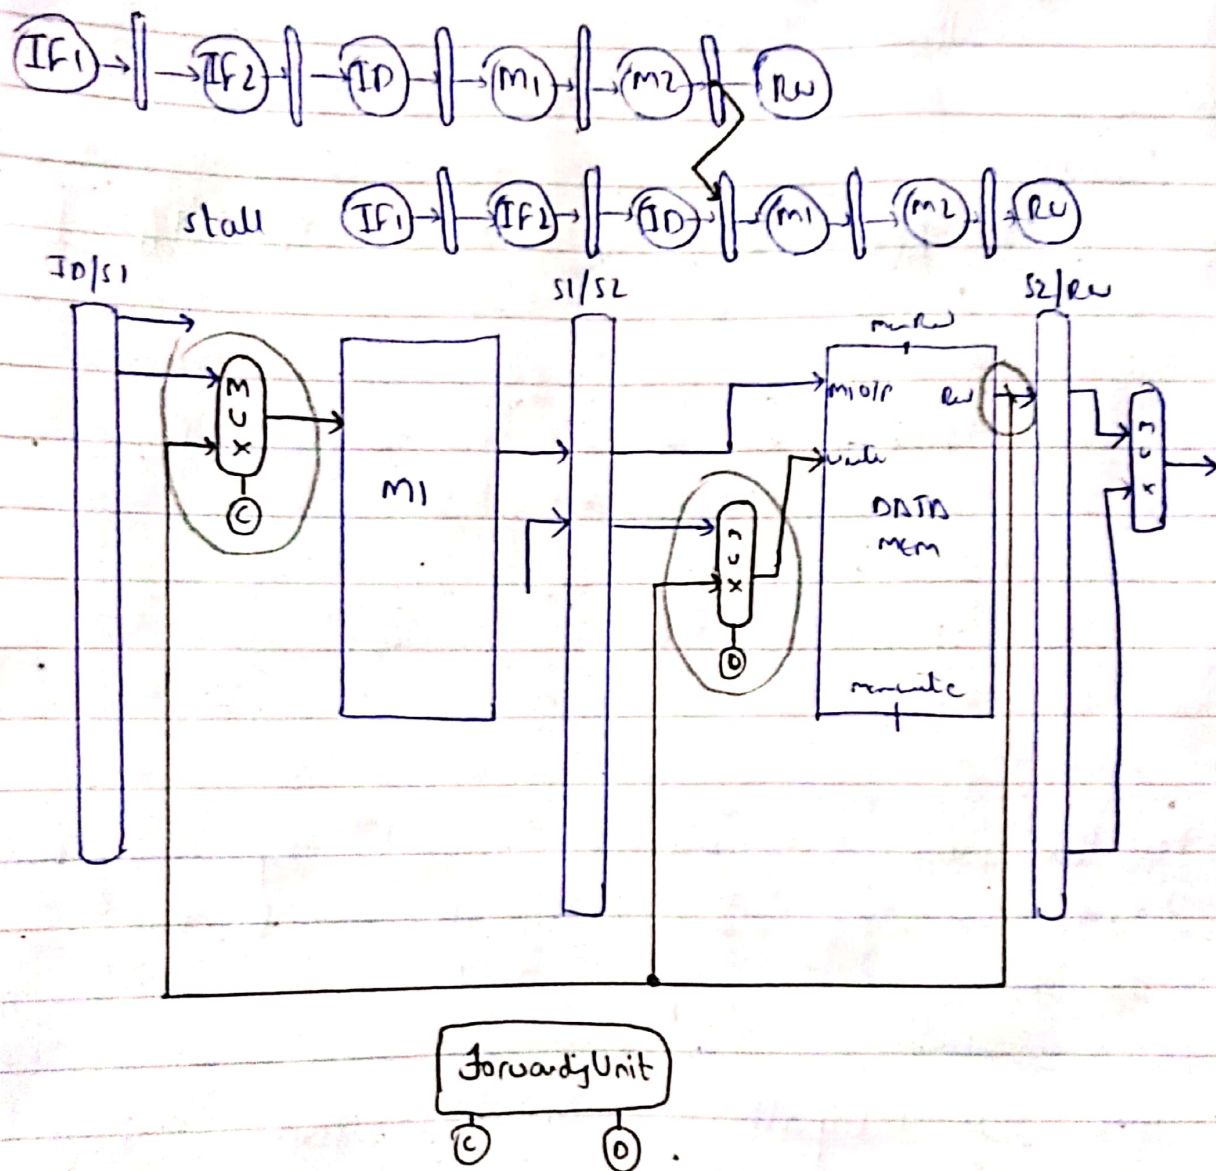 IF1 IF2 ID M1 M2 RW
stall IF1 IF2 ID M1 M2 RW
ID/S1 S1/S2 S2/RW
MUX
C
M1
M1O/P
write
DATA
MEM
MUX
D
MUX
Forwarding Unit
C D